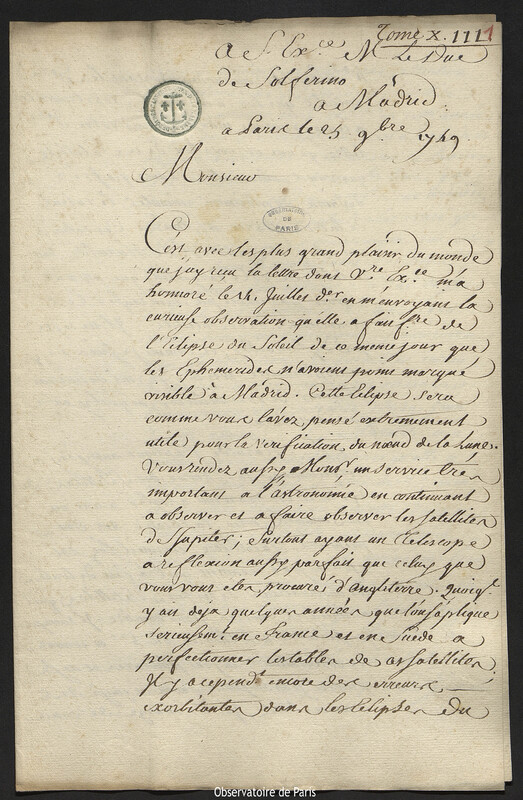 Tome X. 111 1
a S. Exce. M Le Duc
de Solferino
a Mádrid.
a Paris le 25 9bre 1749
Monsieur
OBSERVATOIRE
DE
PARIS
C'est avec les plus grand plaisir du monde
que j'ay reçu la lettre dont Vre. Exce. m'a
honoré le 14. Juillet der. en m'envoyant la
curieuse observation qu'elle a fait fre. de
l'Eclipse du Soleil de ce meme jour que
les Ephemerides n'avoient point marqué
visible à Mádrid. Cette Eclipse sera
comme vous l'avez pensé extremement
utile pour la verification du nœud de la Lune.
Vous rendez aussy Monsr. un service tres
important a l'astronomie en continuant
a observer et a faire observer les satellites
de Jupiter; surtout ayant un Telescope
a reflexion aussy parfait que celuy que
vous vous etes procuré d'Angleterre. Quoiq'l.
y ait deja quelques années que l'on s'aplique
serieusemt. en France et en Suede a
perfectionner les tables de ces satellites,
Il y a cependt. encore des erreurs
exorbitantes dans les Eclipses du
Observatoire de Paris